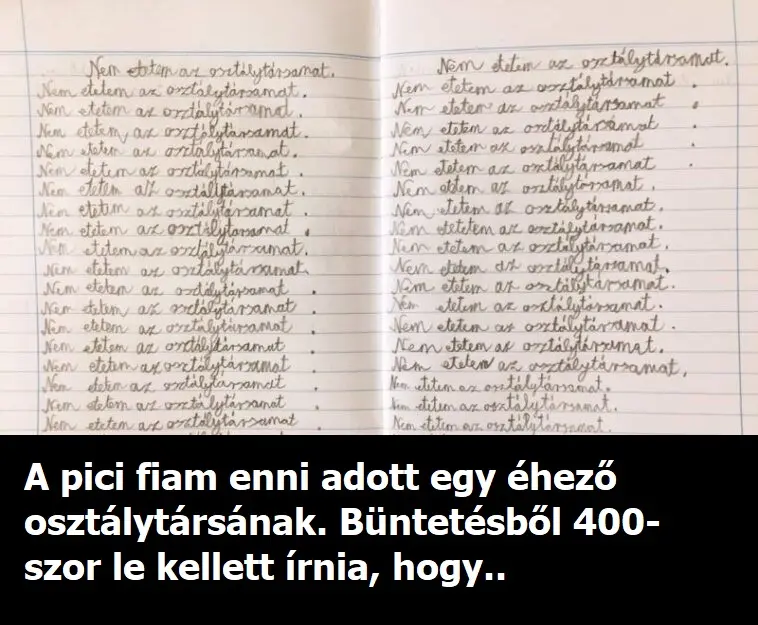 Nem etetem az osztálytársamat.
Nem etetem az osztálytársamat.
Nem etetem az osztálytársamat.
Nem etetem az osztálytársamat.
Nem etetem az osztálytársamat.
Nem etetem az osztálytársamat.
Nem etetem az osztálytársamat.
Nem etetem az osztálytársamat.
Nem etetem az osztálytársamat.
Nem etetem az osztálytársamat.
Nem etetem az osztálytársamat.
Nem etetem az osztálytársamat.
Nem etetem az osztálytársamat.
Nem etetem az osztálytársamat.
Nem etetem az osztálytársamat.
Nem etetem az osztálytársamat.
Nem etetem az osztálytársamat.
Nem etetem az osztálytársamat.
Nem etetem az osztálytársamat.
Nem etetem az osztálytársamat.
Nem etetem az osztálytársamat.
Nem etetem az osztálytársamat.
Nem etetem az osztálytársamat.
Nem etetem az osztálytársamat.
Nem etetem az osztálytársamat.
Nem etetem az osztálytársamat.
Nem etetem az osztálytársamat.
Nem etetetem az osztálytársamat.
Nem etetem az osztálytársamat.
Nem etetem az osztálytársamat.
Nem etetem az osztálytársamat.
Nem etetem az osztálytársamat.
Nem etetem az osztálytársamat.
Nem etetem az osztálytársamat.
Nem etetem az osztálytársamat.
Nem etetem az osztálytársamat.
Nem etetem az osztálytársamat.
Nem etetem az osztálytársamat.
A pici fiam enni adott egy éhező
osztálytársának. Büntetésből 400-
szor le kellett írnia, hogy..